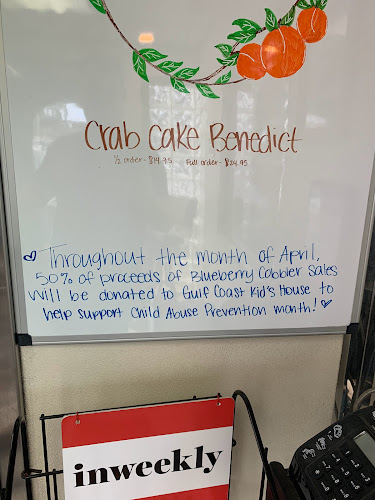 Crab Cake Benedict
1/2 order- $14.95 Full order- $24.95
Throughout the month of April,
50% of proceeds of Blueberry Cobbler Sales
will be donated to Gulf Coast Kid's House to
help support Child Abuse Prevention month!
inweekly